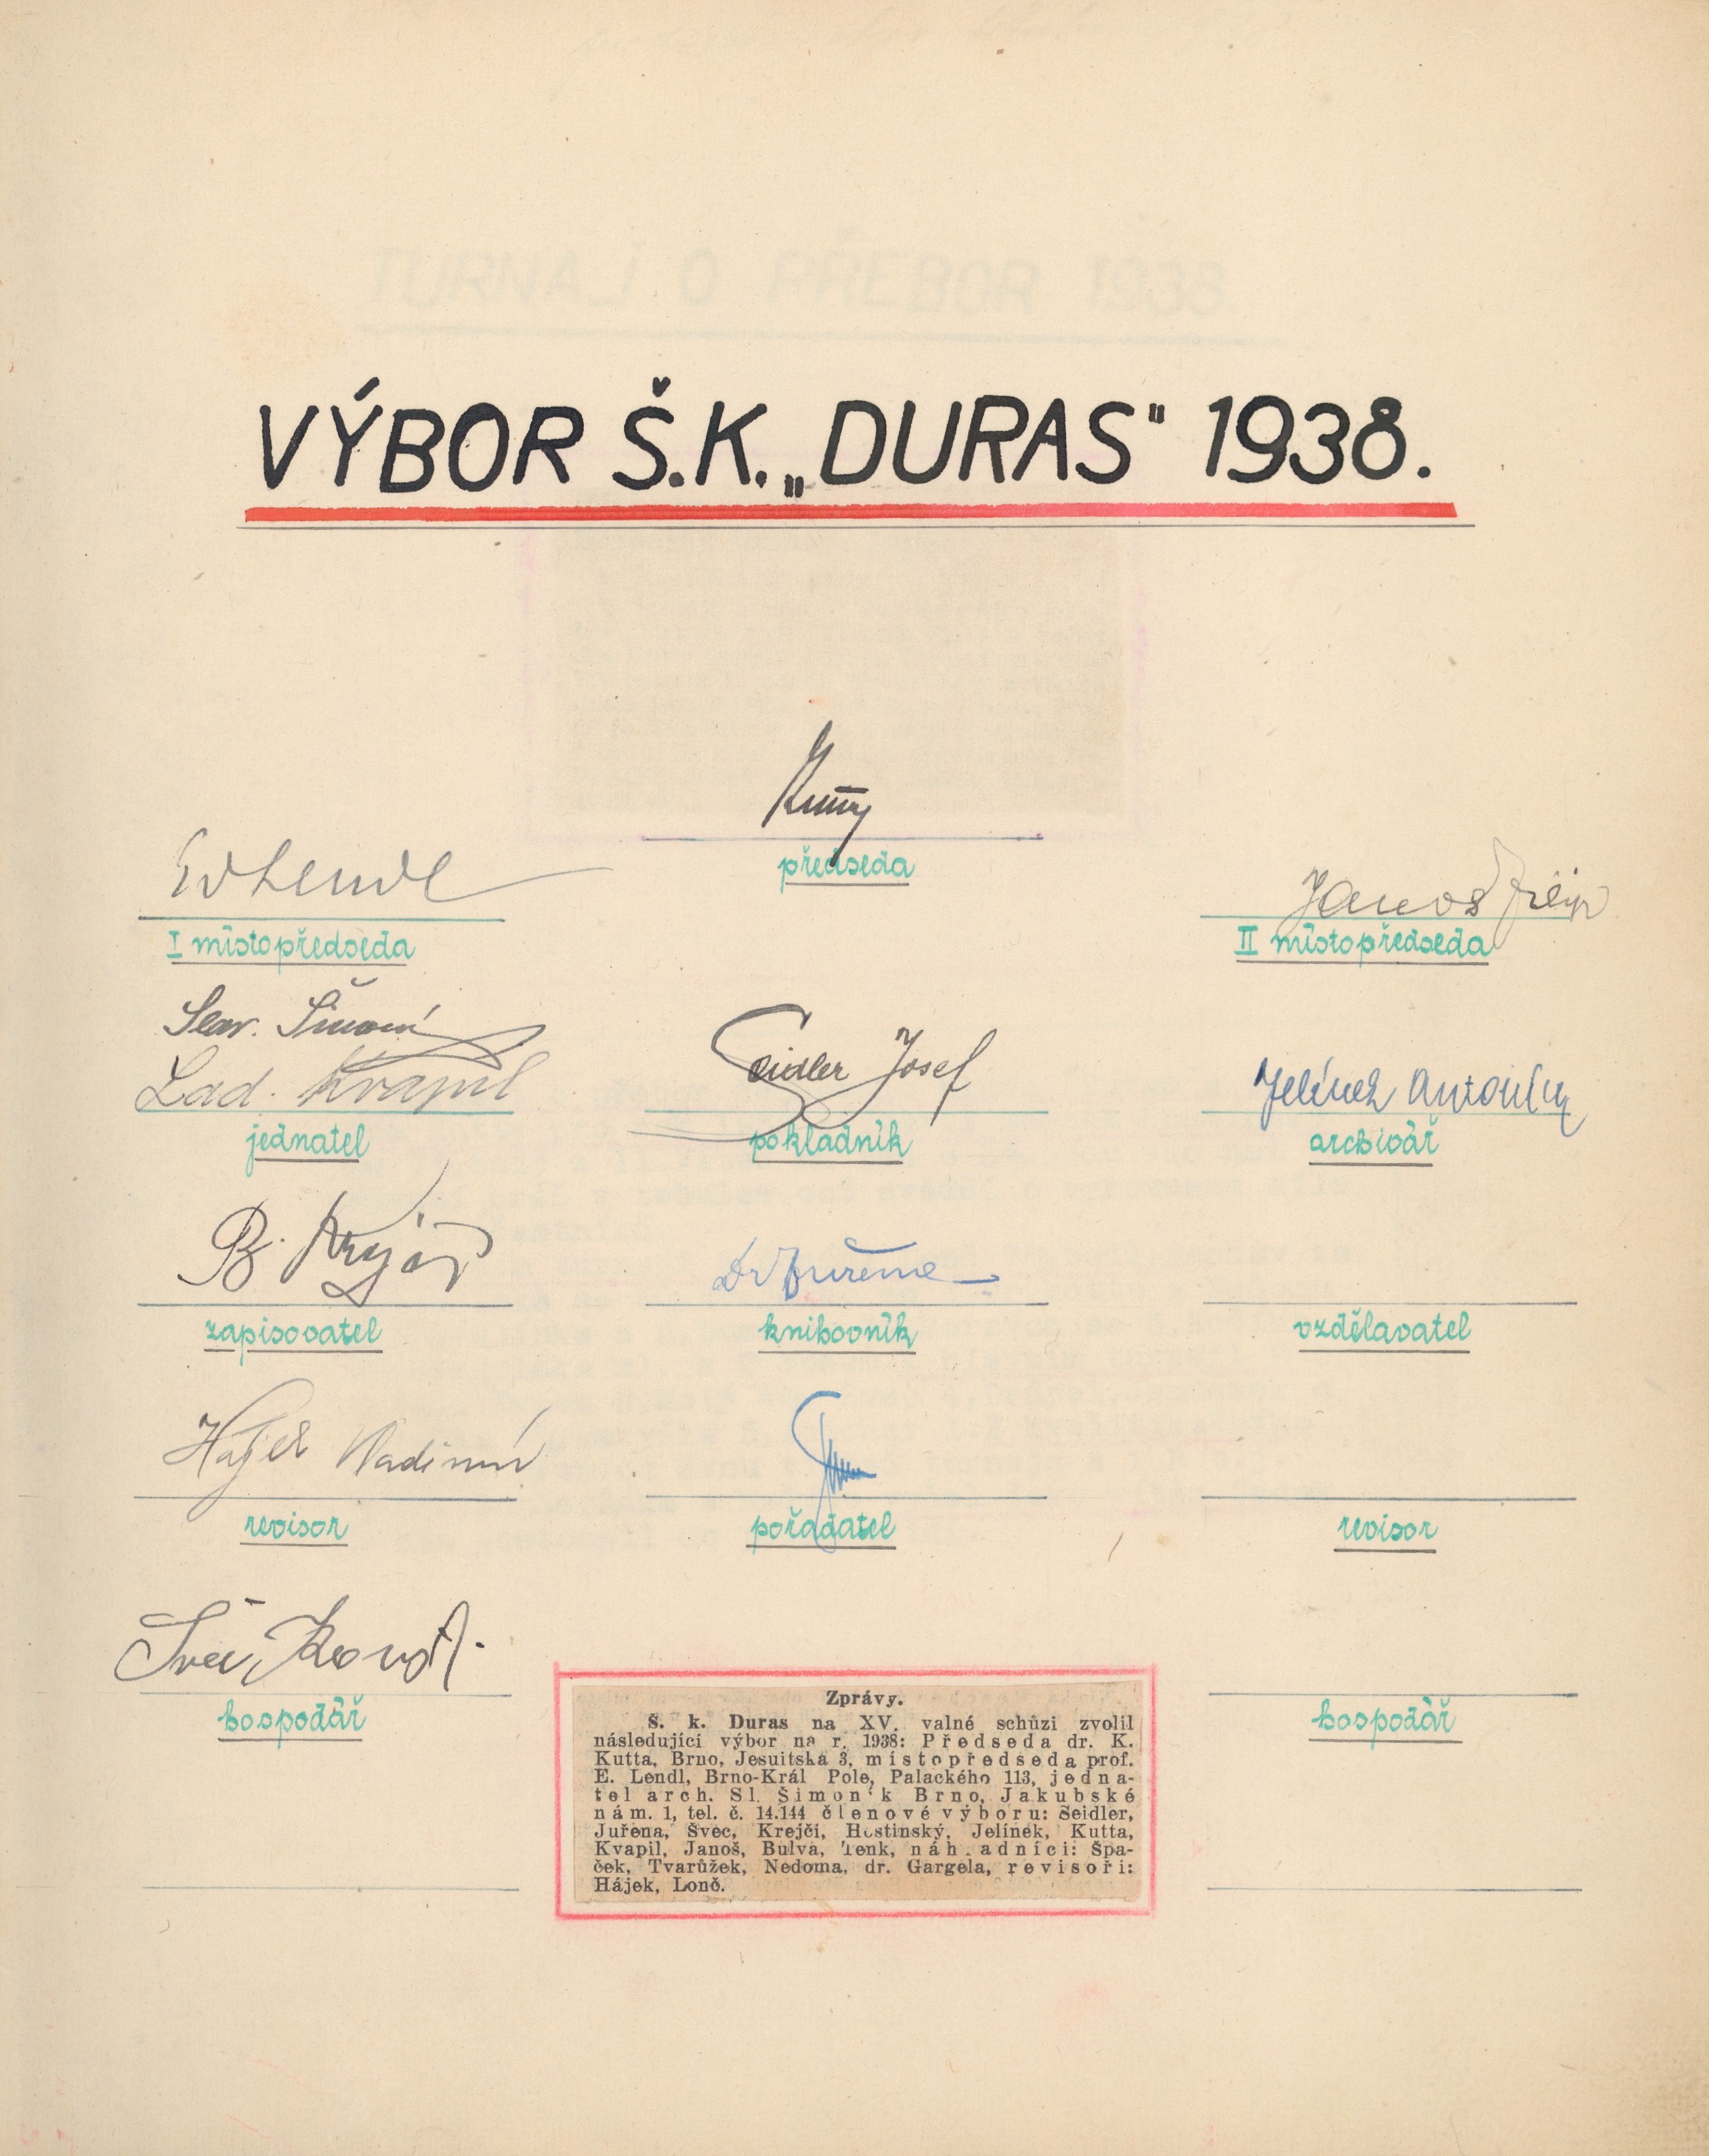 VÝBOR Š.K. „DURAS" 1938.
předseda
I místopředseda
Janoš Filip
II místopředseda
Lad. Kvapil
jednatel
Seidler Josef
pokladník
Jelínek Antonín
archivář
zapisovatel
Dr Juřena
knihovník
vzdělavatel
Hájek Vladimír
revisor
pořadatel
revisor
Švec
hospodář
hospodář
Zprávy.
Š. k. Duras na XV. valné schůzi zvolil
následující výbor na r. 1938: Předseda dr. K.
Kutta, Brno, Jesuitská 3, místopředseda prof.
E. Lendl, Brno-Král Pole, Palackého 113, jedna-
tel arch. Sl. Šimon k Brno, Jakubské
nám. 1, tel. č. 14.144 členové výboru: Seidler,
Juřena, Švec, Krejčí, Hostinský, Jelínek, Kutta,
Kvapil, Janoš, Bulva, Tenk, náh adníci: Špa-
ček, Tvarůžek, Nedoma, dr. Gargela, revisoři:
Hájek, Lonč.